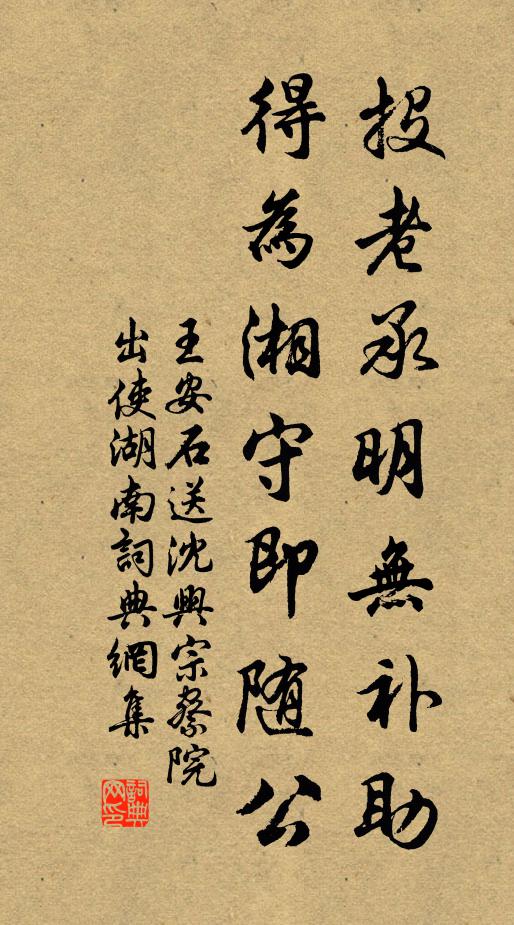 投老承明無补助
得為湘守即随公
王安石送沈興宗察院
出使湖南詞典網集
詞典网印